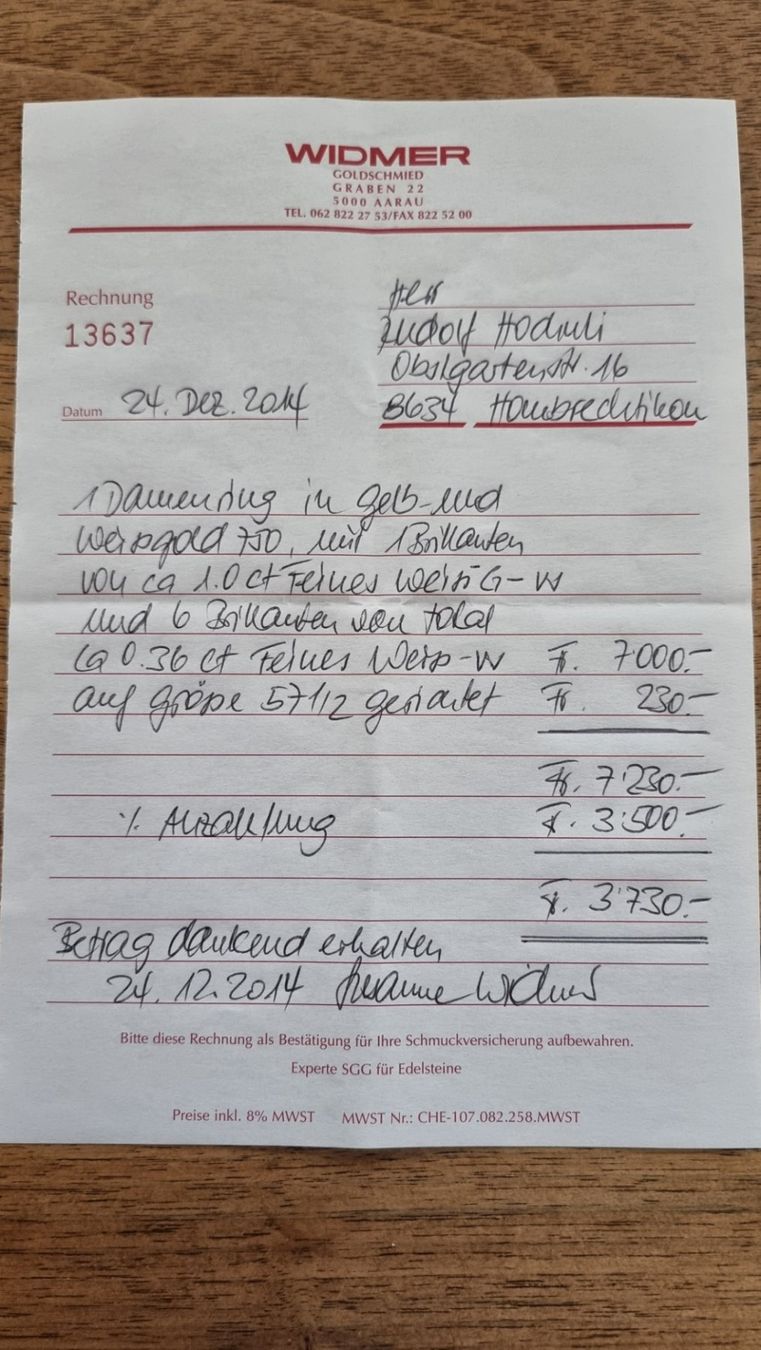 WIDMER
GOLDSCHMIED
GRABEN 22
5000 AARAU
TEL. 062 822 27 53/FAX 822 52 00
Rechnung
13637
Datum 24. Dez. 2014
Herr
Rudolf Hodruli
Obstgartenstr. 16
8634 Hombrechtikon
1 Damenring in Gelb- und
Weissgold 750, mit 1 Brillanten
von ca 1.0 ct Feines Weiss G-W
und 6 Brillanten von total
ca 0.36 ct Feines Weiss-W Fr. 7'000.-
auf grösse 57 1/2 Fr. 230.-
Fr. 7'230.-
./. Anzahlung Fr. 3'500.-
Fr. 3'730.-
Betrag dankend erhalten
24.12.2014 Widmer
Bitte diese Rechnung als Bestätigung für Ihre Schmuckversicherung aufbewahren.
Experte SGG für Edelsteine
Preise inkl. 8% MWST MWST Nr.: CHE-107.082.258.MWST